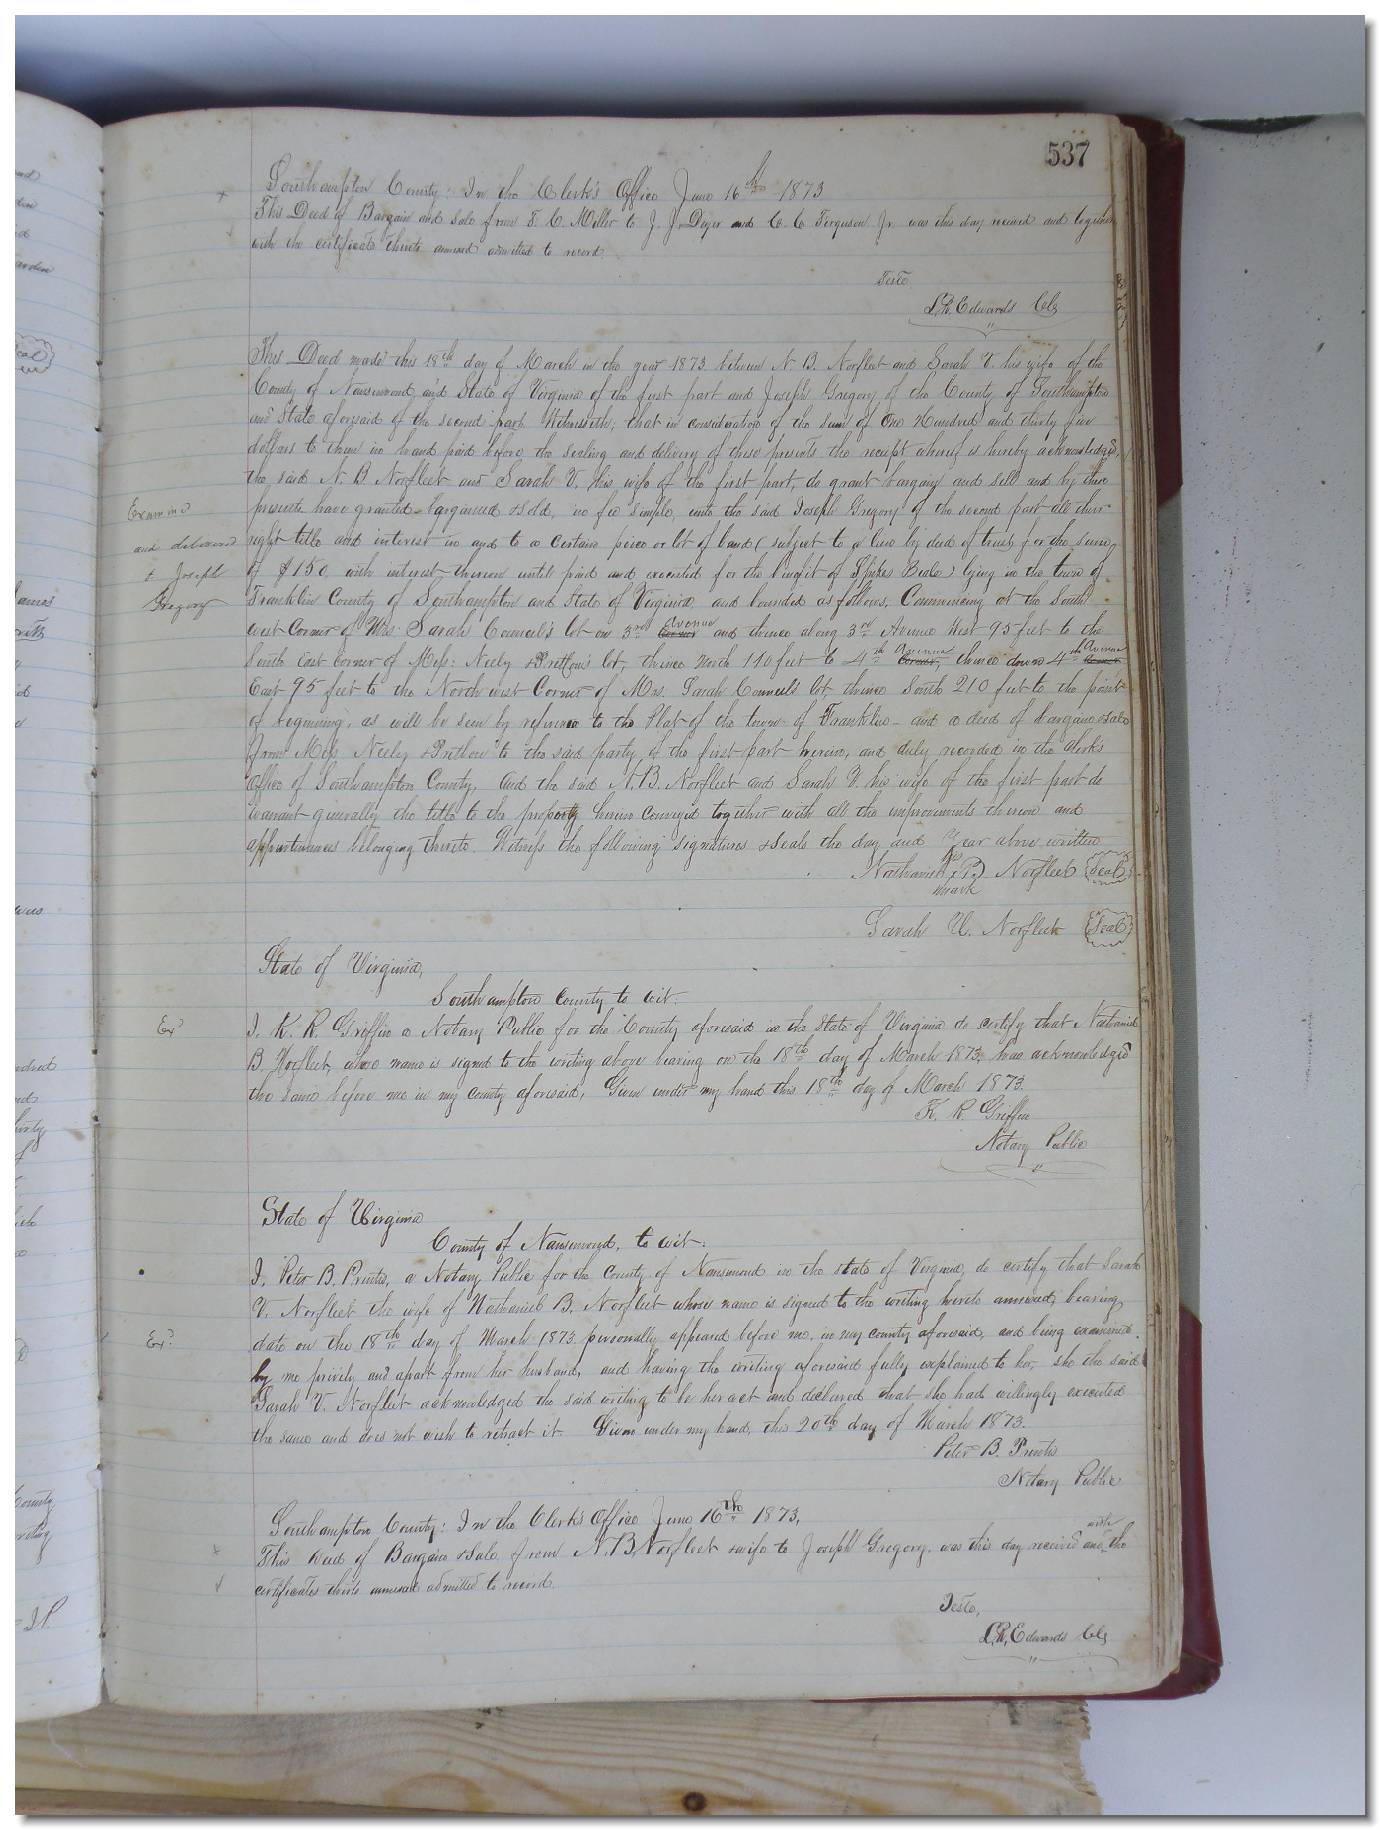 537
Southampton County: In the Clerk's Office June 16th 1873
This Deed of Bargain and Sale from T. C. Miller to J. J. Dyer and C. C. Ferguson Jr. was this day received and together
with the certificate thereto annexed admitted to record.
Teste
L. R. Edwards Clk
This Deed made this 18th day of March in the year 1873 between N. B. Norfleet and Sarah V. his wife of the
County of Nansemond, and State of Virginia of the first part and Joseph Gregory of the County of Southampton
and State aforesaid of the second part. Witnesseth; that in consideration of the sum of One Hundred and thirty five
dollars to them in hand paid before the sealing and delivery of these presents the receipt whereof is hereby acknowledged,
the said N. B Norfleet and Sarah V. his wife of the first part, do grant bargain and sell and by these
presents have granted bargained & sold, in fee simple, unto the said Joseph Gregory of the second part all their
right title and interest in and to a certain piece or lot of land (subject to a lien by deed of trust for the sum
of $150. with interest thereon until paid and executed for the benefit of Beale) lying in the town of
Franklin County of Southampton and State of Virginia and bounded as follows. Commencing at the South
west Corner of Mrs. Sarah Council's lot on 3rd Corner Avenue and thence along 3rd Avenue West 95 feet to the
South East Corner of Mess: Neely & Pretlow's lot, thence North 110 feet to 4th Corner, Avenue thence down 4th Corner Avenue
East 95 feet to the North west Corner of Mrs. Sarah Councils lot thence South 210 feet to the point
of beginning, as will be seen by reference to the Plat of the town of Franklin - and a deed of bargain & sale
from Mess Neely & Pretlow to the said party of the first part herein, and duly recorded in the clerk's
office of Southampton County, and the said N. B. Norfleet and Sarah V. his wife of the first part do
warrant generally the title to the property herein conveyed together with all the improvements thereon and
appurtenances belonging thereto. Witness the following signatures & seals the day and year above written
Nathaniel his B mark Norfleet Seal
Sarah V. Norfleet Seal
Examined
and delivered
to Joseph
Gregory
State of Virginia,
Southampton County to wit:
Exd
I. K. R. Griffin a Notary Public for the County aforesaid in the State of Virginia do certify that Nathaniel
B. Norfleet, whose name is signed to the writing above bearing on the 18th day of March 1873, has acknowledged
the same before me in my county aforesaid, Given under my hand this 18th day of March 1873.
K. R. Griffin
Notary Public
State of Virginia
County of Nansemond, to wit:
I, Peter B. Prentis, a Notary Public for the County of Nansemond in the state of Virginia, do certify that Sarah
V. Norfleet the wife of Nathaniel B. Norfleet whose name is signed to the writing hereto annexed, bearing
Exd
date on the 18th day of March 1873 personally appeared before me, in my county aforesaid, and being examined
by me privily and apart from her husband, and having the writing aforesaid fully explained to her, she the said
Sarah V. Norfleet acknowledged the said writing to be her act and declared that she had willingly executed
the same and does not wish to retract it. Given under my hand, this 20th day of March 1873.
Peter B. Prentis
Notary Public
Southampton County: In the Clerk's Office June 16th 1873,
This Deed of Bargain & Sale from N. B. Norfleet & wife to Joseph Gregory was this day received and with the
certificates thereto annexed admitted to record
Teste,
L. R. Edwards Clk